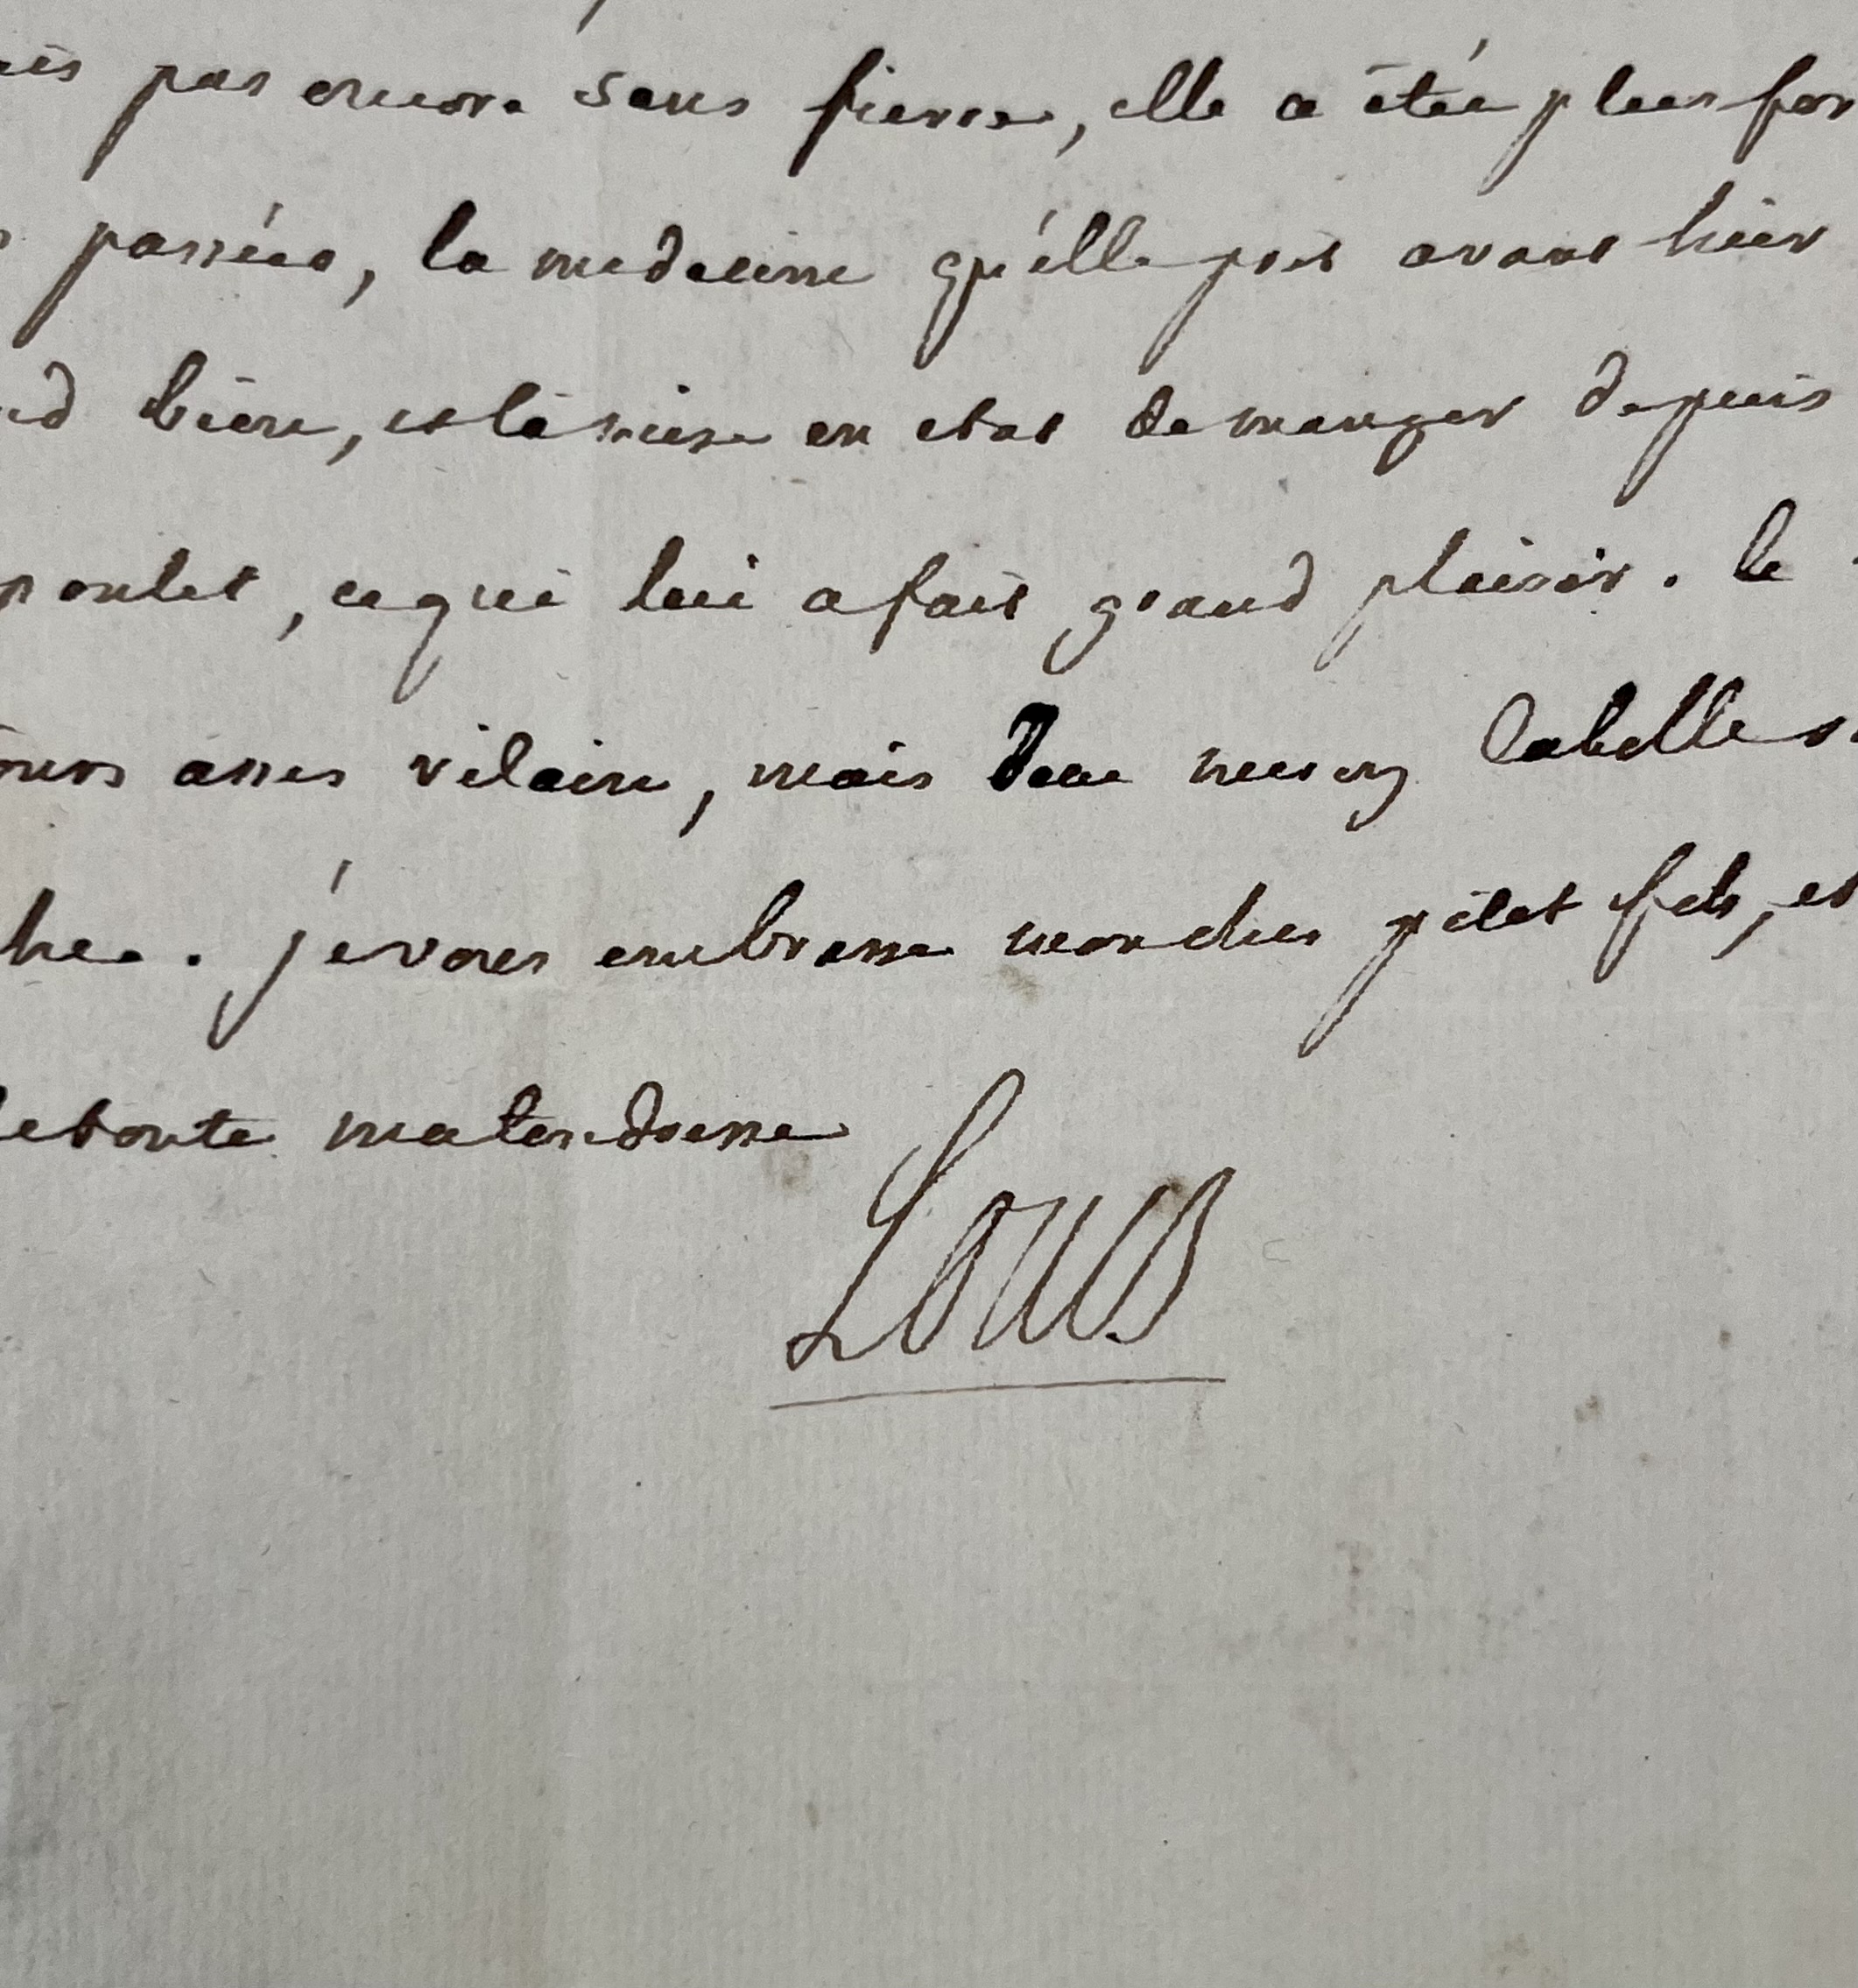 pas encore sans fievre, elle a étée plus for
passées, la medecine qu'elle prit avant hier
bien, et l'a mise en etat de manger depuis
poulet, ce qui lui a fait grand plaisir. le
assés vilain, mais
. je vous embrasse mon cher petit fils, et
de toute ma tendresse
Louis